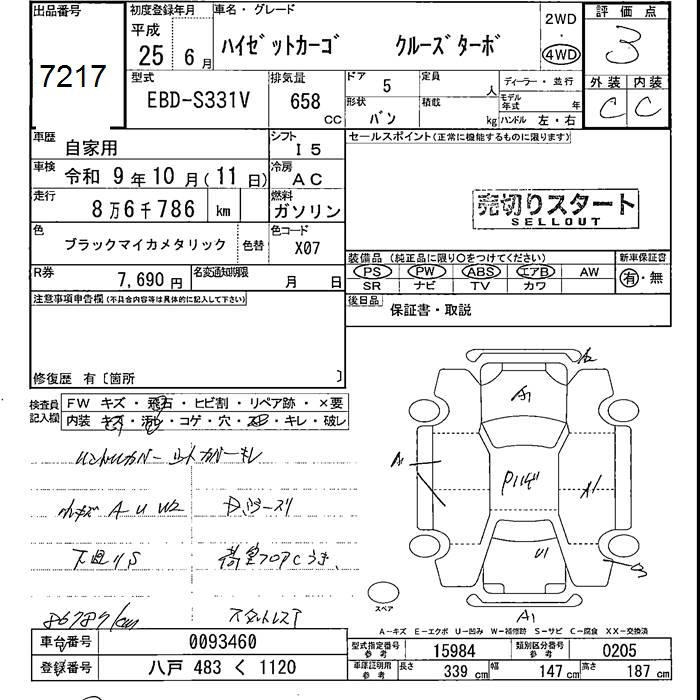 出品番号
7217
初度登録年月
平成
25年 6月
車名・グレード
ハイゼットカーゴ クルーズターボ
2WD
・
4WD
評価点
3
型式
EBD-S331V
排気量
658
cc
ドア 5
形状 バン
定員 人
積載 kg
ディーラー・並行
モデル年式 年
ハンドル 左・右
外装 内装
C C
車歴
自家用
シフト
I5
車検
令和 9年 10月(11日)
冷房
AC
走行
8万6千786 km
燃料
ガソリン
色
ブラックマイカメタリック
色替
色コード
X07
R券
7,690円
名変通知期限
月 日
セールスポイント(正常に機能するものに限ります)
売切りスタート
SELLOUT
装備品(純正品に限り○をつけてください)
PS PW ABS エアB AW
SR ナビ TV カワ
新車保証書
有・無
後日品
保証書・取説
注意事項申告欄(不具合内容等は具体的に記入して下さい)
修復歴 有〔箇所 〕
検査員
記入欄
FW キズ・飛石・ヒビ割・リペア跡・×要
内装 キズ・汚れ・コゲ・穴・ネジ・キレ・破レ
小キズ A U W2
下廻りS
86787km
A2
A1
A1
A1
U1
A1
スペア
A-キズ E-エクボ U-凹み W-補修跡 S-サビ C-腐食 XX-交換済
車台番号
0093460
登録番号
八戸 483 く 1120
型式指定番号
参考
15984
類別区分番号
参考
0205
車庫証明用
参考
長さ 339 cm
幅 147 cm
高さ 187 cm